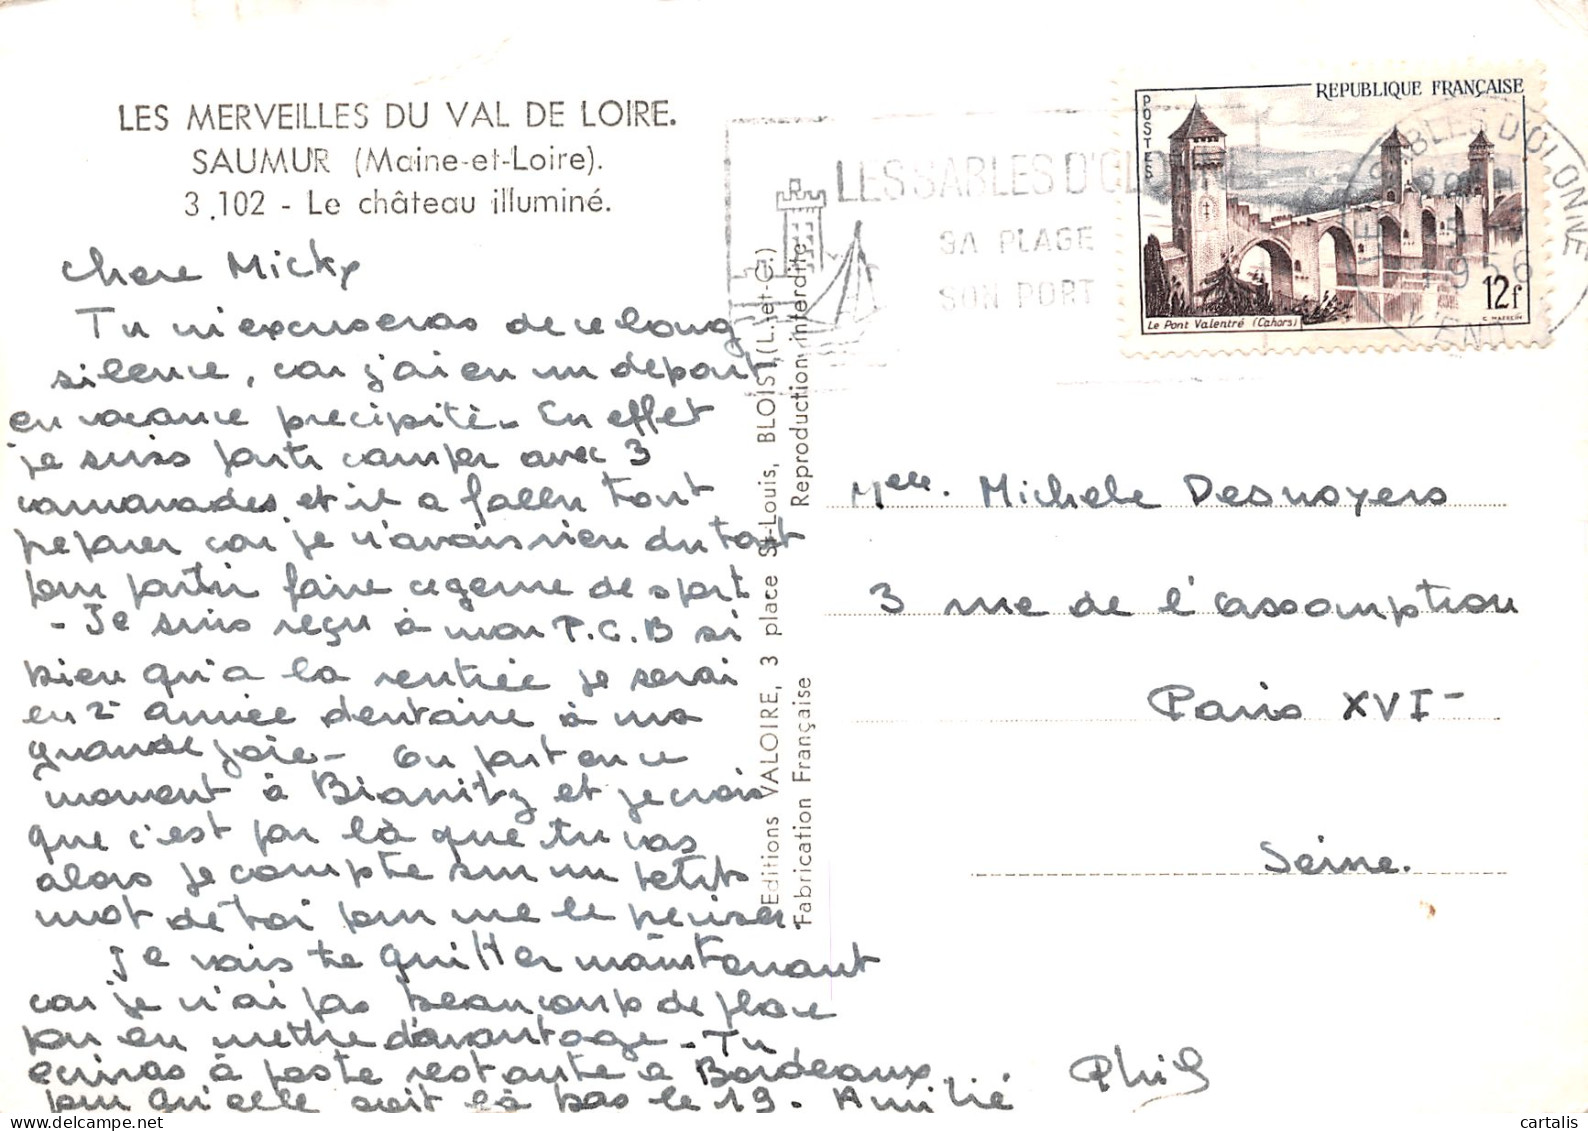 LES MERVEILLES DU VAL DE LOIRE.
SAUMUR (Maine-et-Loire).
3.102 - Le château illuminé.
Chere Micky
Tu m'excuseras de ce long
silence, car j'ai eu un depart
en vacance precipité. En effet
je suis parti camper avec 3
camarades et il a fallu tout
preparer car je n'avais rien du tout
pour partir faire ce genre de sport
- Je suis reçu à mon P.C.B si
bien qu'a la rentrée je serai
en 2e année dentaire à ma
grande joie - On part en ce
moment à Biarritz et je crois
que c'est par là que tu vas
alors je compte sur un petit
mot de toi pour me le
Je vais te quitter maintenant
car je n'ai pas beaucoup de place
pour en mettre d'avantage - Tu
ecriras à poste restante a Bordeaux
pour qu'elle soit là bas le 19. Amitié
Phil
Editions VALOIRE, 3 place St-Louis, BLOIS (L.-et-C.)
Fabrication Française
Reproduction interdite
LES SABLES D'OLONNE
SA PLAGE
SON PORT
REPUBLIQUE FRANÇAISE
POSTES
Le Pont Valentré (Cahors)
12f
C. MAZELIN
LES SABLES D'OLONNE
1956
Melle. Michele Desnoyers
3 rue de l'assomption
Paris XVI-
Seine.
delcampe.net
catp92